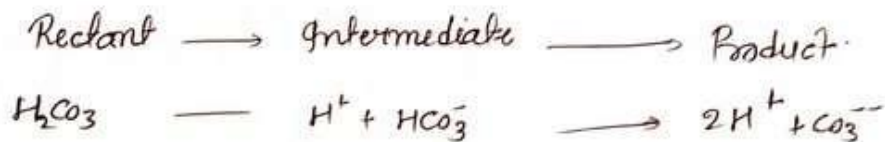 Rectant → Intermediate → Product.
H₂CO₃ — H⁺ + HCO₃⁻ → 2H⁺ + CO₃⁻⁻